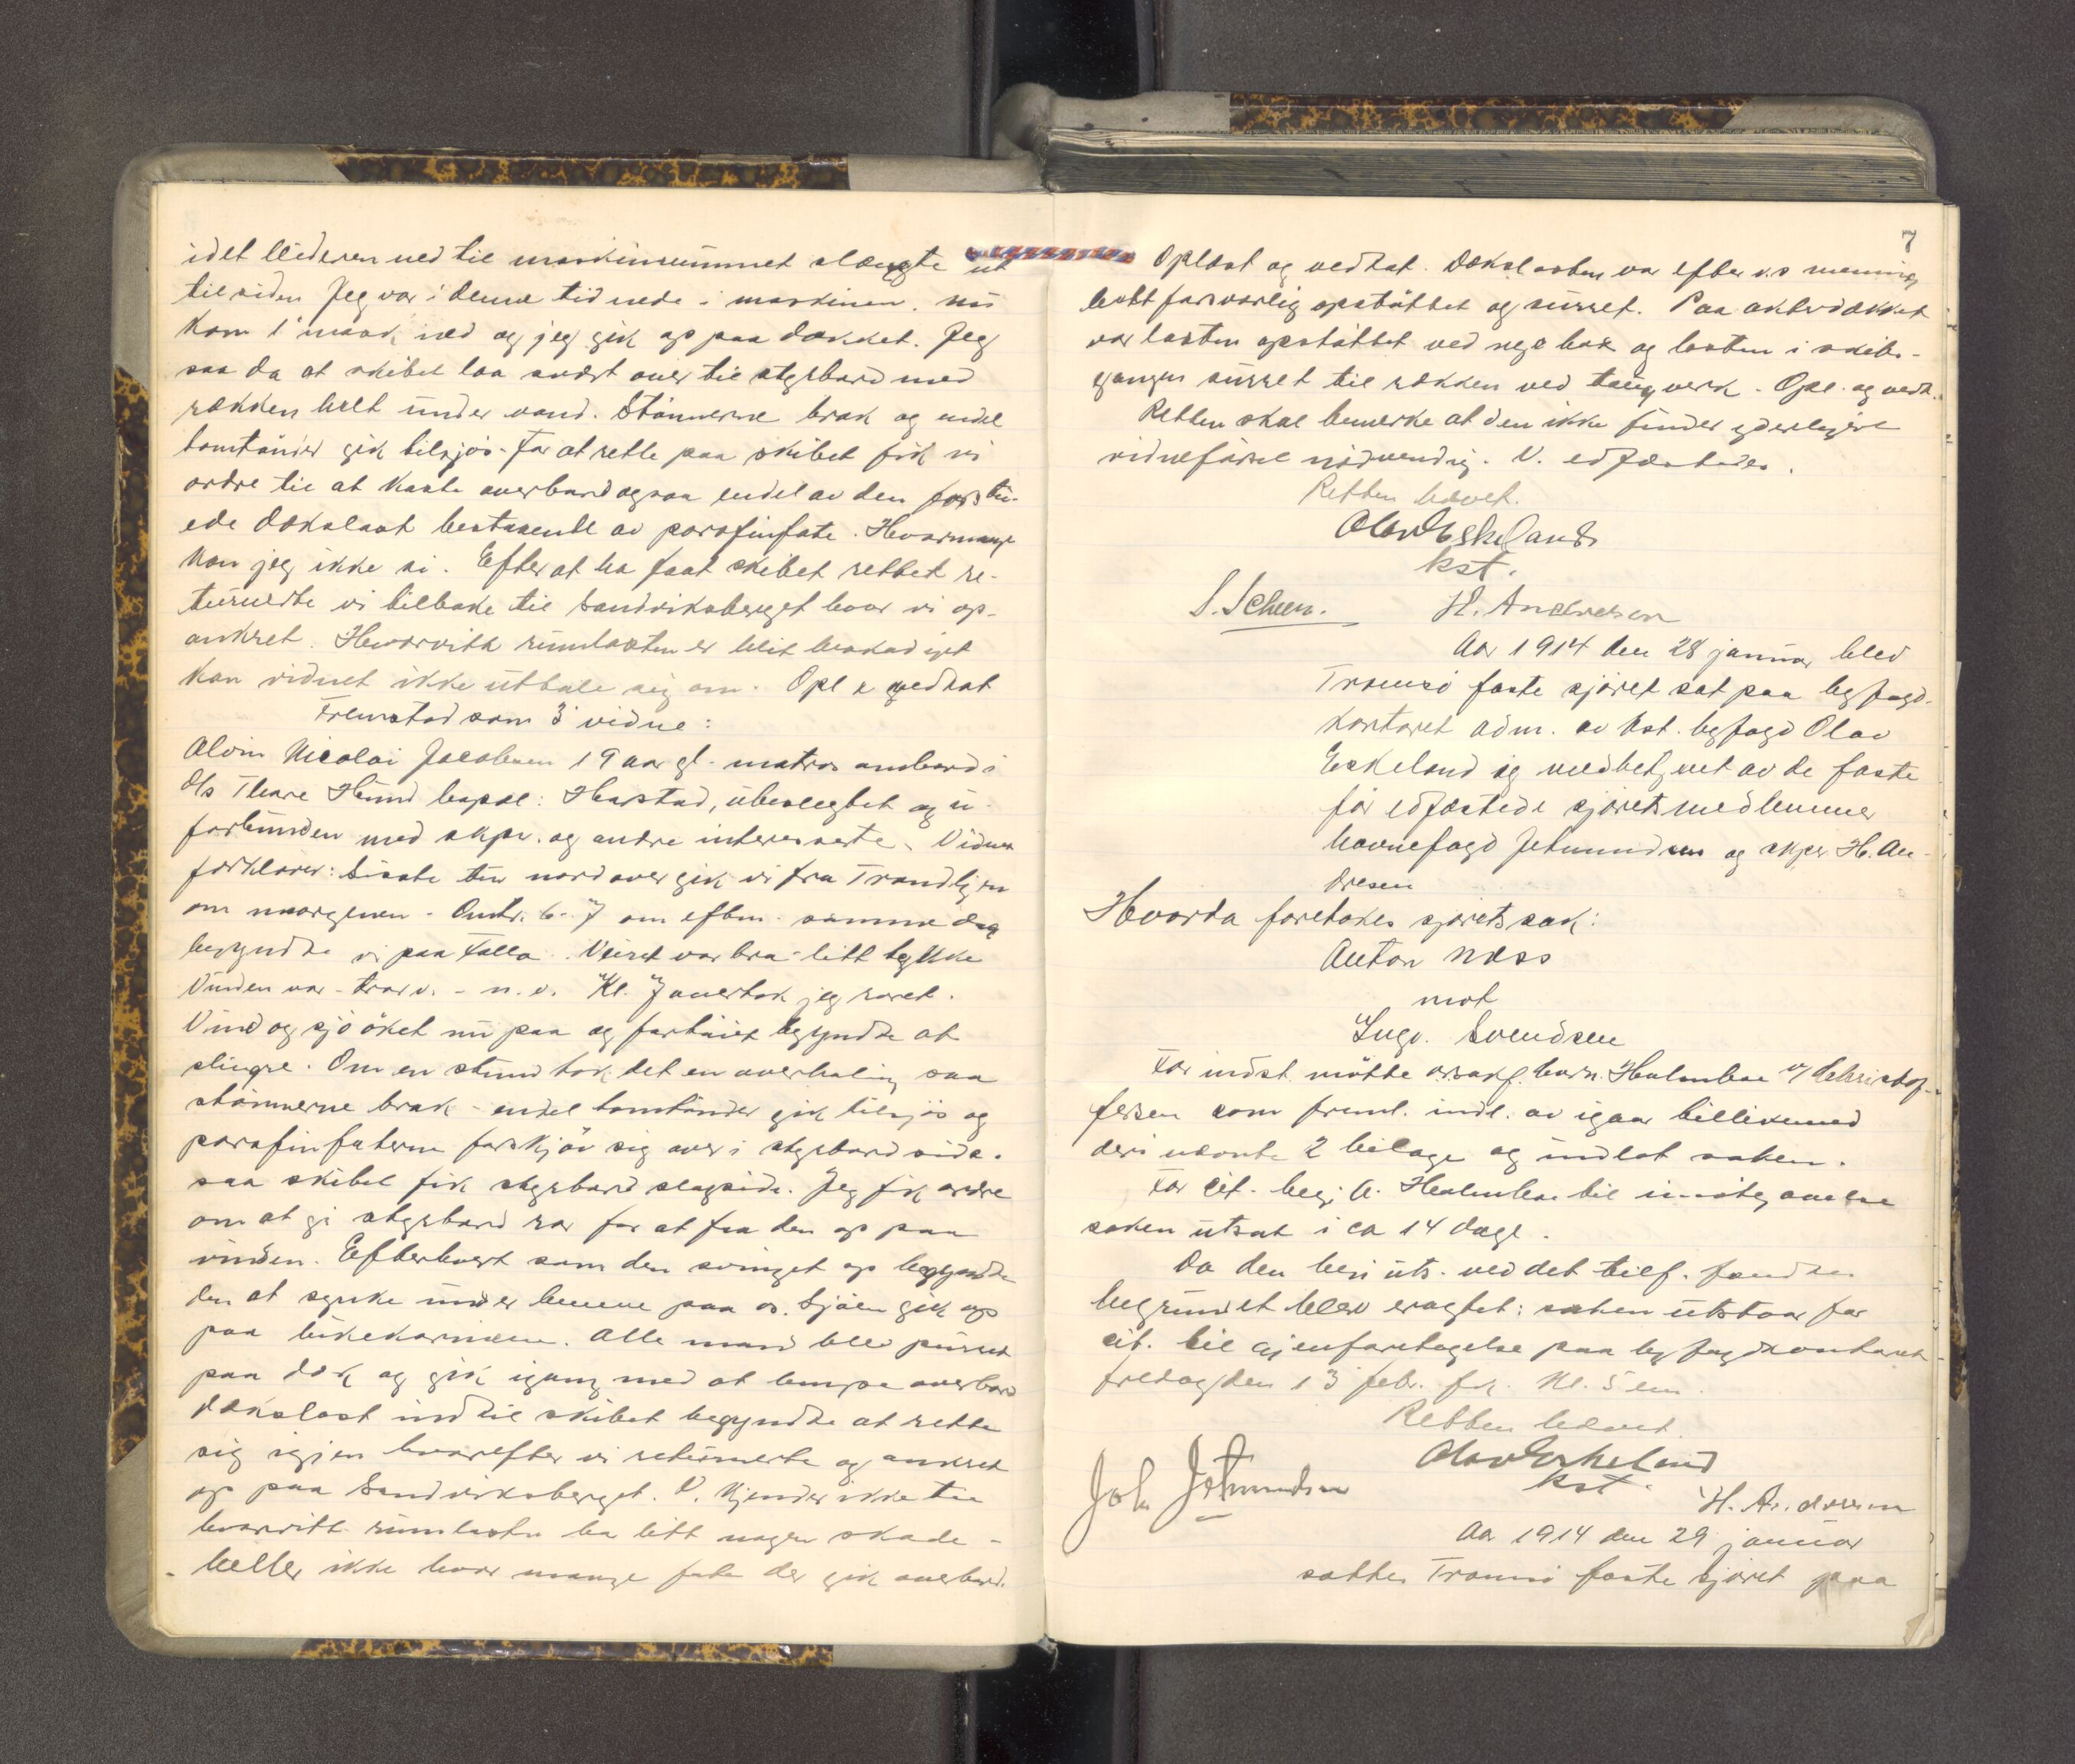 idet lederen ned til maskinrummet slængte ut
til siden Jeg var i denne tid nede i maskinen. nu
kom 1' mask ned og jeg gik op paa dækket. Jeg
saa da at skibet laa svært over til stgrbord med
rækken helt under vand. Stønnerne brak og endel
tomtønder gik tilsjøs. For at rette paa skibet fik vi
ordre til at kaste overbord ogsaa endel av den forstu-
ede dækslast bestaaende av parafinfate. Hvormange
kan jeg ikke si. Efter at ha faat skibet rettet re-
turnerte vi tilbake til Sandviksberget hvor vi op-
ankret. Hvorvitt rumlasten er blit beskadiget
kan vidnet ikke uttale sig om. Opl & vedtat
Fremstod som 3' vidne:
Alvin Nicolai Jacobsen 19 aar gl. matros ombord i
d/s Thore Hund bopæl: Harstad, ubeslegtet og u-
forbunden med skpr. og andre interesserte. Vidnet
forklarer: Siste tur nordover gik vi fra Trondhjem
om morgenen. Omtr. 6-7 om eftm. samme dag
begyndte vi paa Folla. Veiret var bra - litt tykke
Vinden var tvær v. - n.v. Kl. 7 overtok jeg roret.
Vind og sjø øket nu paa og fartøiet begyndte at
slingre. Om en stund tok det en overhaling saa
stønnerne brak - endel tomtønder gik tilsjøs og
parafinfaterne forskjøv sig over i stgrbord side.
saa skibet fik stgrbord slagside. Jeg fik ordre
om at gi stgrbord ror for at faa den op paa
vinden. Efterhvert som den svinget op begyndte
den at synke under benene paa os. Sjøen gik op
paa lukekarmene. Alle mand blev purret
paa dæk og gik igang med at lempe overbord
dækslast indtil skibet begyndte at rette
sig igjen hvorefter vi returnerte og ankret
op paa Sandviksberget. V. kjender ikke til
hvorvitt rumlasten ha litt nogen skade -
heller ikke hvor mange fate der gik overbord.
7
Oplæst og vedtat. Dækslasten var efter v.s mening
helt forsvarlig opstøttet og surret. Paa akterdækket
var lasten opstøttet ved nye box og lasten i skibs-
gangen surret til rækken ved taugverk. Opl. og vedt.
Retten skal bemerke at den ikke finder yderligere
vidneførsel nødvendig. V. edfæstedes.
Retten hævet.
Olav Eskeland
kst.
S. Scheen. H. Andresen
Aar 1914 den 28 januar blev
Tromsø faste sjøret sat paa byfogd-
kontoret adm. av kst. byfogd Olav
Eskeland og medbetjent av de faste
før edfæstede sjøretsmedlemmer
havnefogd Jetmundsen og skpr H. An-
dresen
Hvorda foretokes sjøretssak:
Anton Næss
mot
Ingv. Svendsen
For indst. møtte orsakf. Holmboe v/ Christof-
fersen som freml. indl. av igaar tillikemed
deri nævnte 2 bilage og indlot saken.
For cit. beg. A. Holmboe til imøtegaaelse
saken utsat i ca 14 dage.
Da den beg. uts. ved det tilf. fandtes
begrundet blev eragtet: saken utstaar for
cit. til gjenforetagelse paa byfogdkontoret
fredag den 13 febr. fk. Kl. 5 em.
Retten hævet.
Olav Eskeland
kst.
Joh Jetmundsen H. Andresen
Aar 1914 den 29 januar
sattes Tromsø faste Sjøret paa